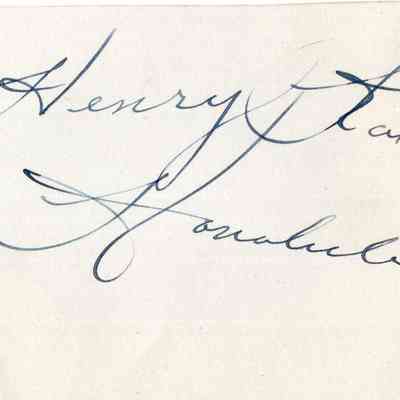 Henry
Honolulu